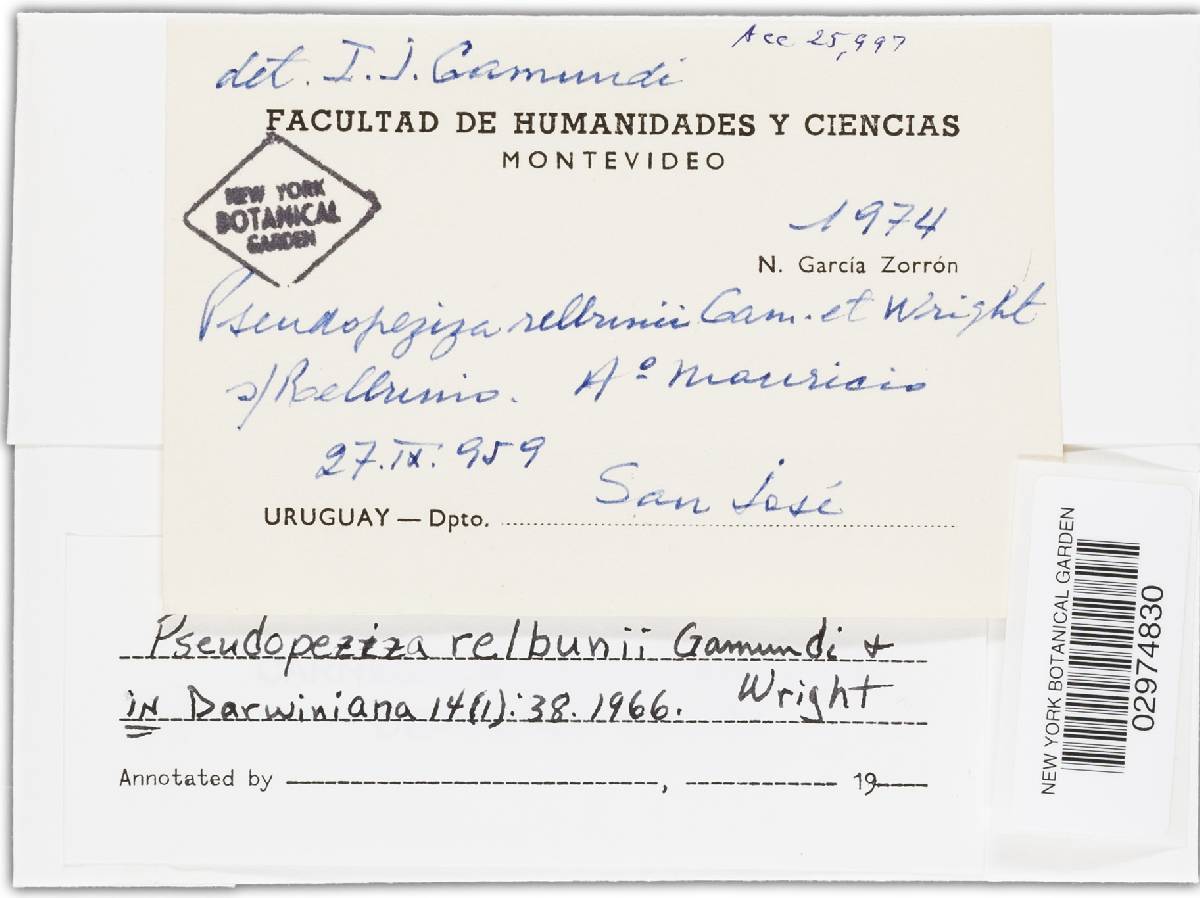 Acc 25,997
det. I. J. Gamundi
FACULTAD DE HUMANIDADES Y CIENCIAS
MONTEVIDEO
NEW YORK
BOTANICAL
GARDEN
1974
N. García Zorrón
Pseudopeziza relbunii Gam. et Wright
s/Relbunio. Aº Mauricio
27.IX.959
San José
URUGUAY — Dpto.
Pseudopeziza relbunii Gamundi &
Wright
IN Darwiniana 14(1):38. 1966.
Annotated by , 19
NEW YORK BOTANICAL GARDEN
02974830